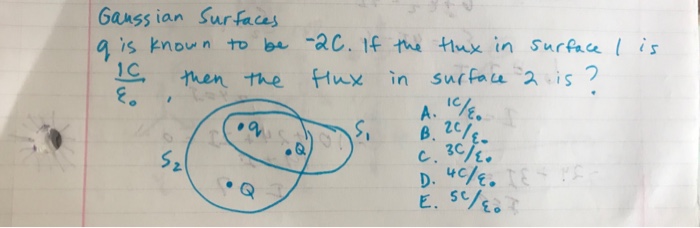 Gaussian Surfaces
q is known to be -2C. If the flux in surface 1 is
1C/ε₀, then the flux in surface 2 is?
A. 1C/ε₀
B. 2C/ε₀
C. 3C/ε₀
D. 4C/ε₀
E. 5C/ε₀
•q
S₁
•Q
S₂
•Q